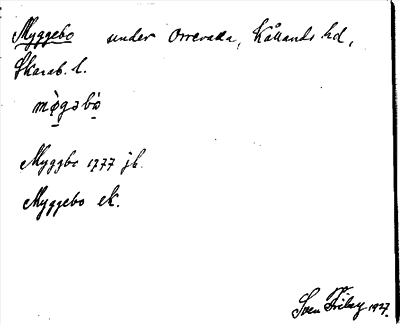 Myggebo under Orrevalla, Kållands hd,
Skarab. l.
mø̀gəbò
Myggbo 1777 jb.
Myggebo ek.
Sven Friberg 1927.